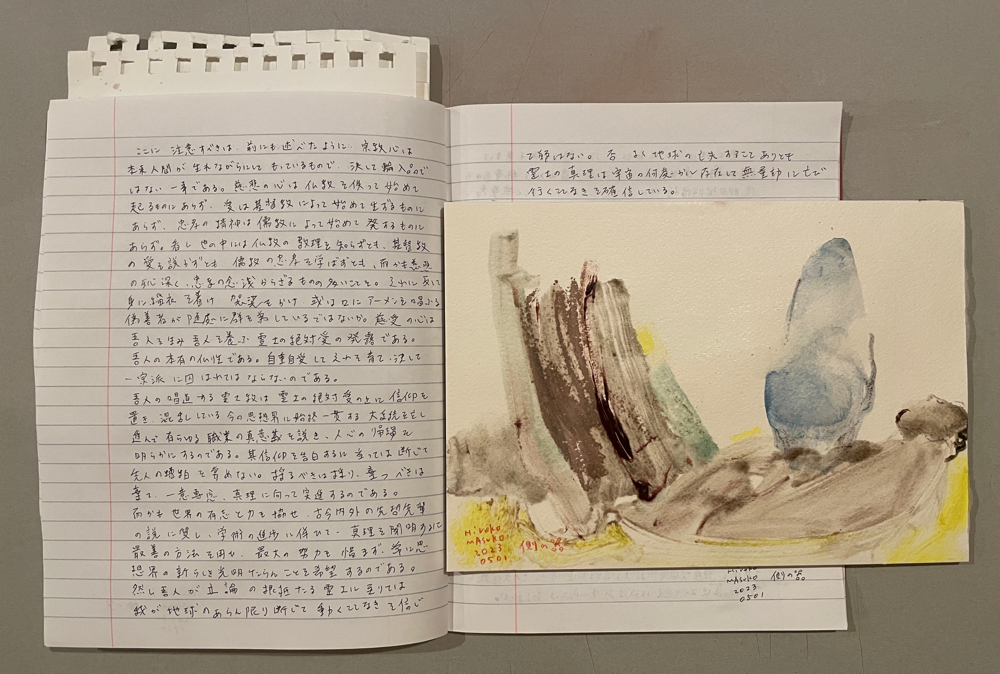 ここに 注意すべきは、前にも述べたように、宗教心は
本来人間が生れながらにしてもっているもので、決して輸入品で
はない一事である。慈悲の心は仏教を俟って始めて
起るものにあらず、愛は基督教によって始めて生ずるものに
あらず、忠孝の精神は儒教によって始めて発するものに
あらず。若し世の中には仏教の教理を知らずとも、基督教
の愛を説かずとも 儒教の忠孝を学ばずとも、而かも慈悲
の心深く、忠孝の念浅からざるもの多いことを。之れに反して
身に緇衣を着け 袈裟をかけ 或は口にアーメンを唱ふる
偽善者が随処に群を為しているではないか。慈愛の心は
吾人を生み吾人を養ふ霊土の絶対愛の発露である。
吾人の本有の仏性である。自重自愛して之れを育て、決して
一宗派に囚はれてはならないのである。
吾人の唱道する宗教は 霊土の絶対愛の上に信仰を
置き 混乱している今の思想界に始終一貫する大系統を正し
進んで有らゆる職業の真意義を説き、人心の帰趨を
明らかにするのである。其信仰を告白するに当っては断じて
先人の糟粕を嘗めない。採るべきは採り、棄つべきは
棄て、一意専心 真理に向って突進するのである。
而かも世界の有志と力を協せ、古今内外の先哲先輩
の説に質し、学術の進歩に伴ひて、真理を開明するに
最善の方法を用ひ、最大の努力を惜まず、常に思
想界の新らしき光明たらんことを希望するのである。
然し吾人が立論の根拠たる霊土に至りては
我が地球のあらん限り断じて動くことなきを信じ
て疑はない。否 よし地球の亡失することありとも
霊土の真理は宇宙の何処かに存在して無量劫に亡び
行くことなきを確信している。
HiRoKo
MASuKo
2023
0501
側の器
HiRoKo
MASuKo
2023
0501
側の器